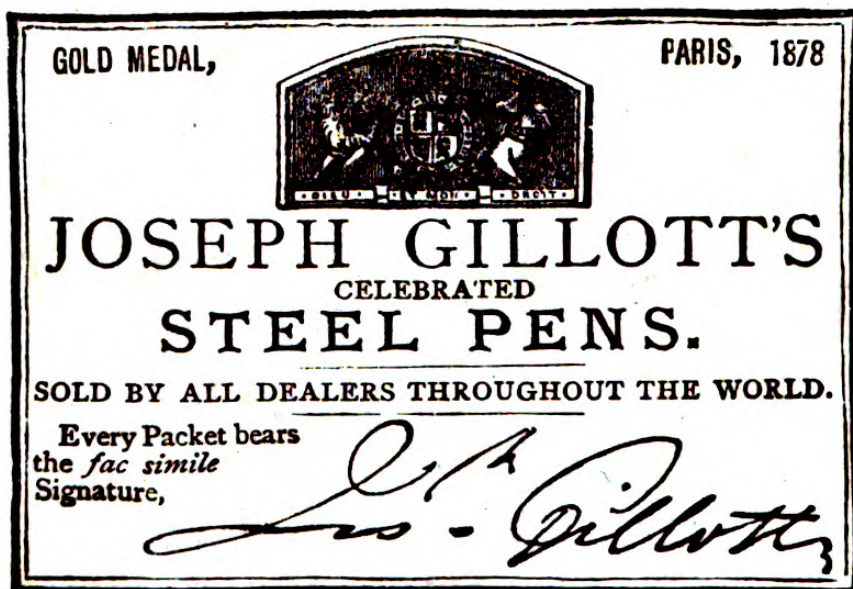 GOLD MEDAL, PARIS, 1878
DIEU ET MON DROIT
JOSEPH GILLOTT'S
CELEBRATED
STEEL PENS.
SOLD BY ALL DEALERS THROUGHOUT THE WORLD.
Every Packet bears
the fac simile
Signature,
Josh. Gillott